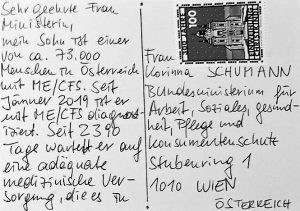 Sehr geehrte Frau
Ministerin,
mein Sohn ist einer
von ca. 73.000
Menschen in Österreich
mit ME/CFS. Seit
Jänner 2019 ist er
mit ME/CFS diagnos-
tiziert. Seit 2390
Tage wartet er auf
eine adäquate
medizinische Ver-
sorgung, die es in
100
Frau
Korinna SCHUMANN
Bundesministerium für
Arbeit, Soziales, gesund-
heit, Pflege und
Konsumentenschutz
Stubenring 1
1010 WIEN
ÖSTERREICH